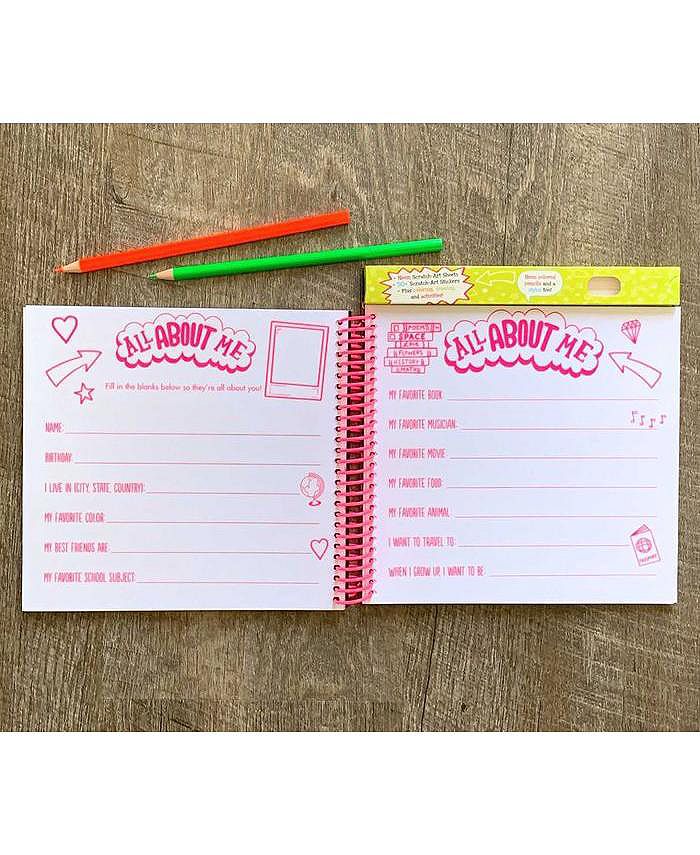 • Neon Scratch-Art Sheets
• 50+ Scratch-Art Stickers
• Plus coloring, drawing,
and activities!
Neon colored
pencils and a
stylus too!
ALL ABOUT ME
Fill in the blanks below so they're all about you!
NAME:
BIRTHDAY:
I LIVE IN (CITY, STATE, COUNTRY):
MY FAVORITE COLOR:
MY BEST FRIENDS ARE:
MY FAVORITE SCHOOL SUBJECT:
POEMS
SPACE
FLOWERS
HISTORY
MATHS
ALL ABOUT ME
MY FAVORITE BOOK:
MY FAVORITE MUSICIAN:
MY FAVORITE MOVIE:
MY FAVORITE FOOD:
MY FAVORITE ANIMAL:
I WANT TO TRAVEL TO:
WHEN I GROW UP, I WANT TO BE:
PASSPORT